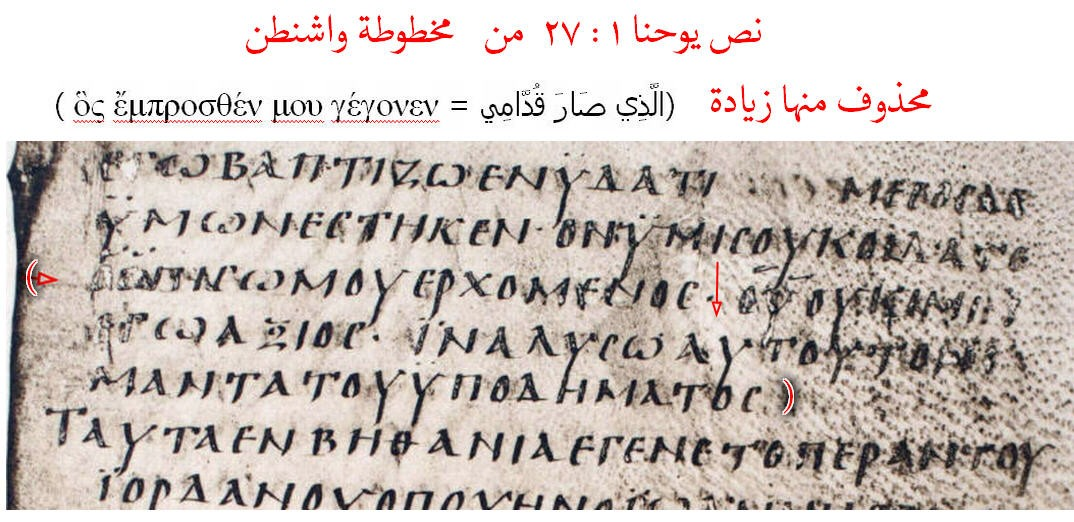 نص يوحنا ١ : ٢٧ من مخطوطة واشنطن
محذوف منها زيادة (الَّذِي صَارَ قُدَّامِي = ὃς ἔμπροσθέν μου γέγονεν )
ΕΓΩΒΑΠΤΙΖΩΕΝΫΔΑΤΙ ΜΕϹΟϹΔΕ
ΫΜΩΝΕϹΤΗΚΕΝ·ΟΝΫΜΙϹΟΥΚΟΙΔΑΤΕ
ΜΟΥΕΡΧΟΜΕΝΟϹ·ΟΥΟΥΚΕΙΜΙ
ΕΓΩΑΞΙΟϹ·ΪΝΑΛΥϹΩΑΥΤΟΥΤΟΝΙ
ΜΑΝΤΑΤΟΥΫΠΟΔΗΜΑΤΟϹ
ΤΑΥΤΑΕΝΒΗΘΑΝΙΑΕΓΕΝΕΤΟΠΕΡΑΝΤΟΥ
ΪΟΡΔΑΝΟΥΟΠΟΥΗΝ